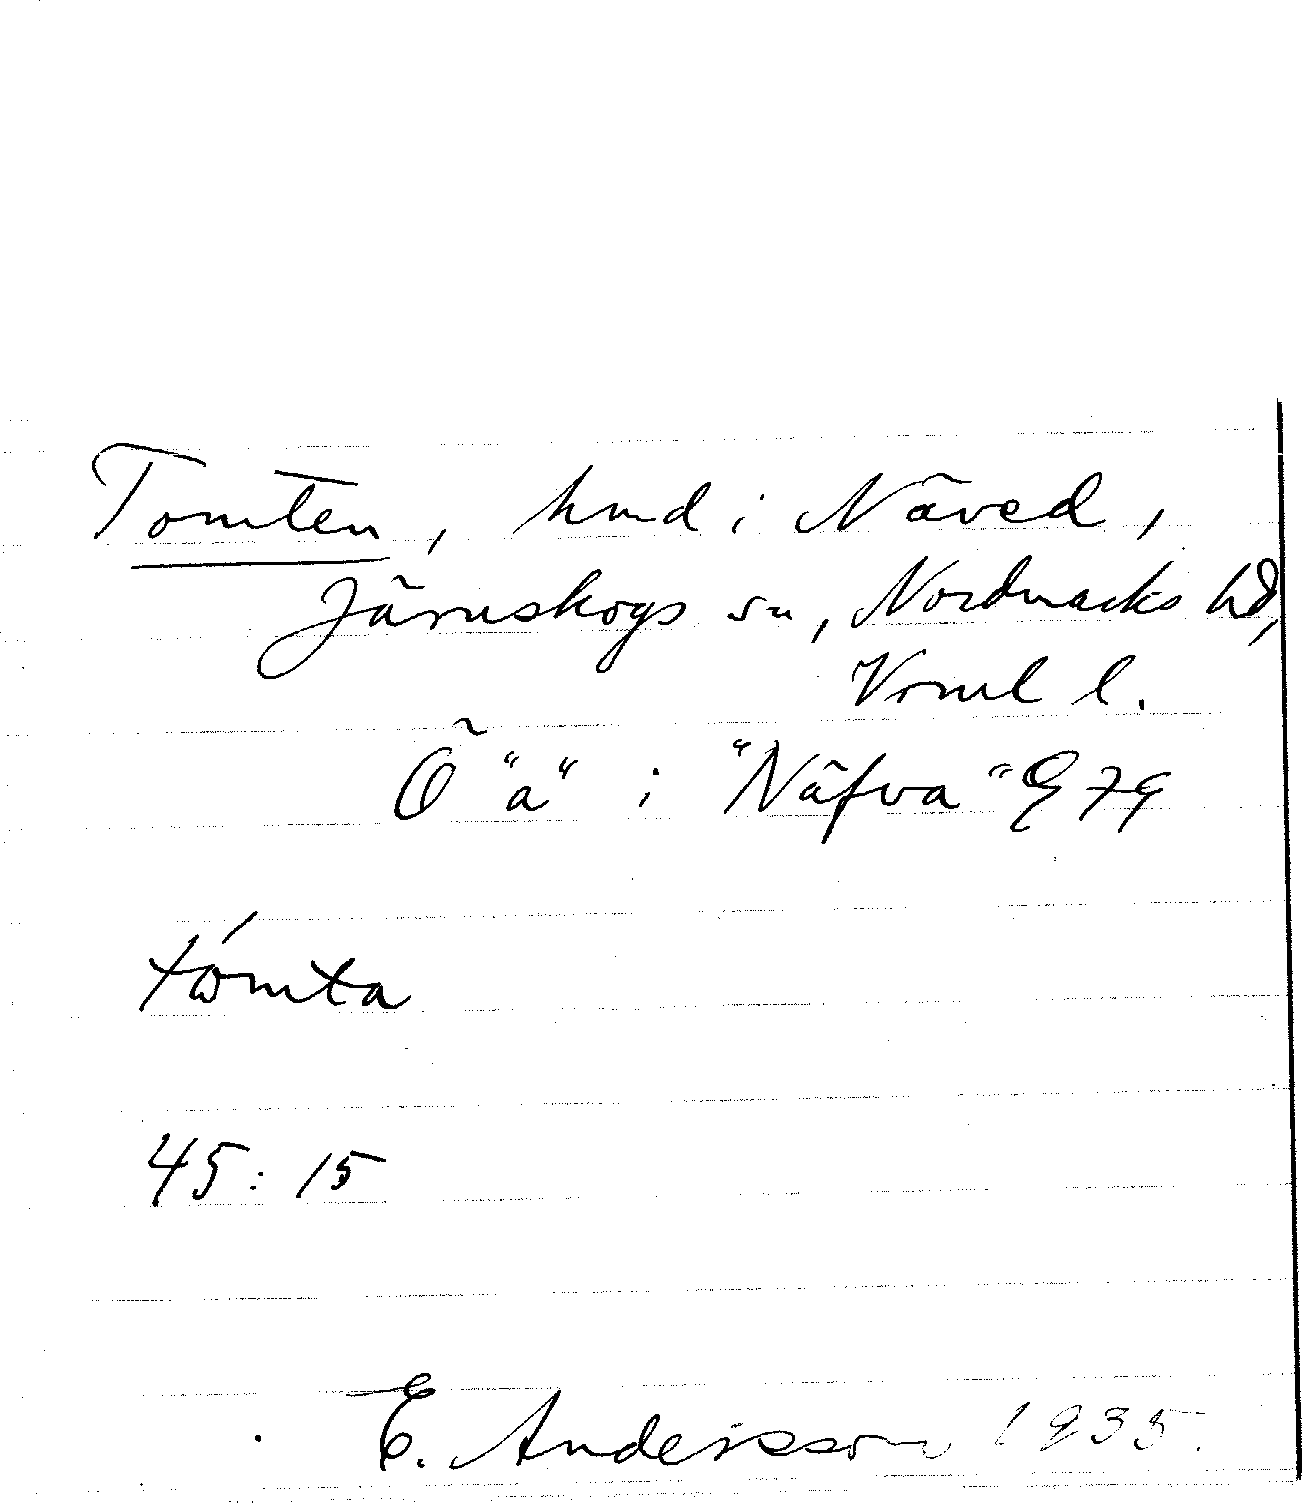 Tomten, hmd i Näved,
Järnskogs sn, Nordmarks hd,
Vrml l.
Ö "a" i "Näfva" G 79
tómta
45: 15
E. Andersson 1935.